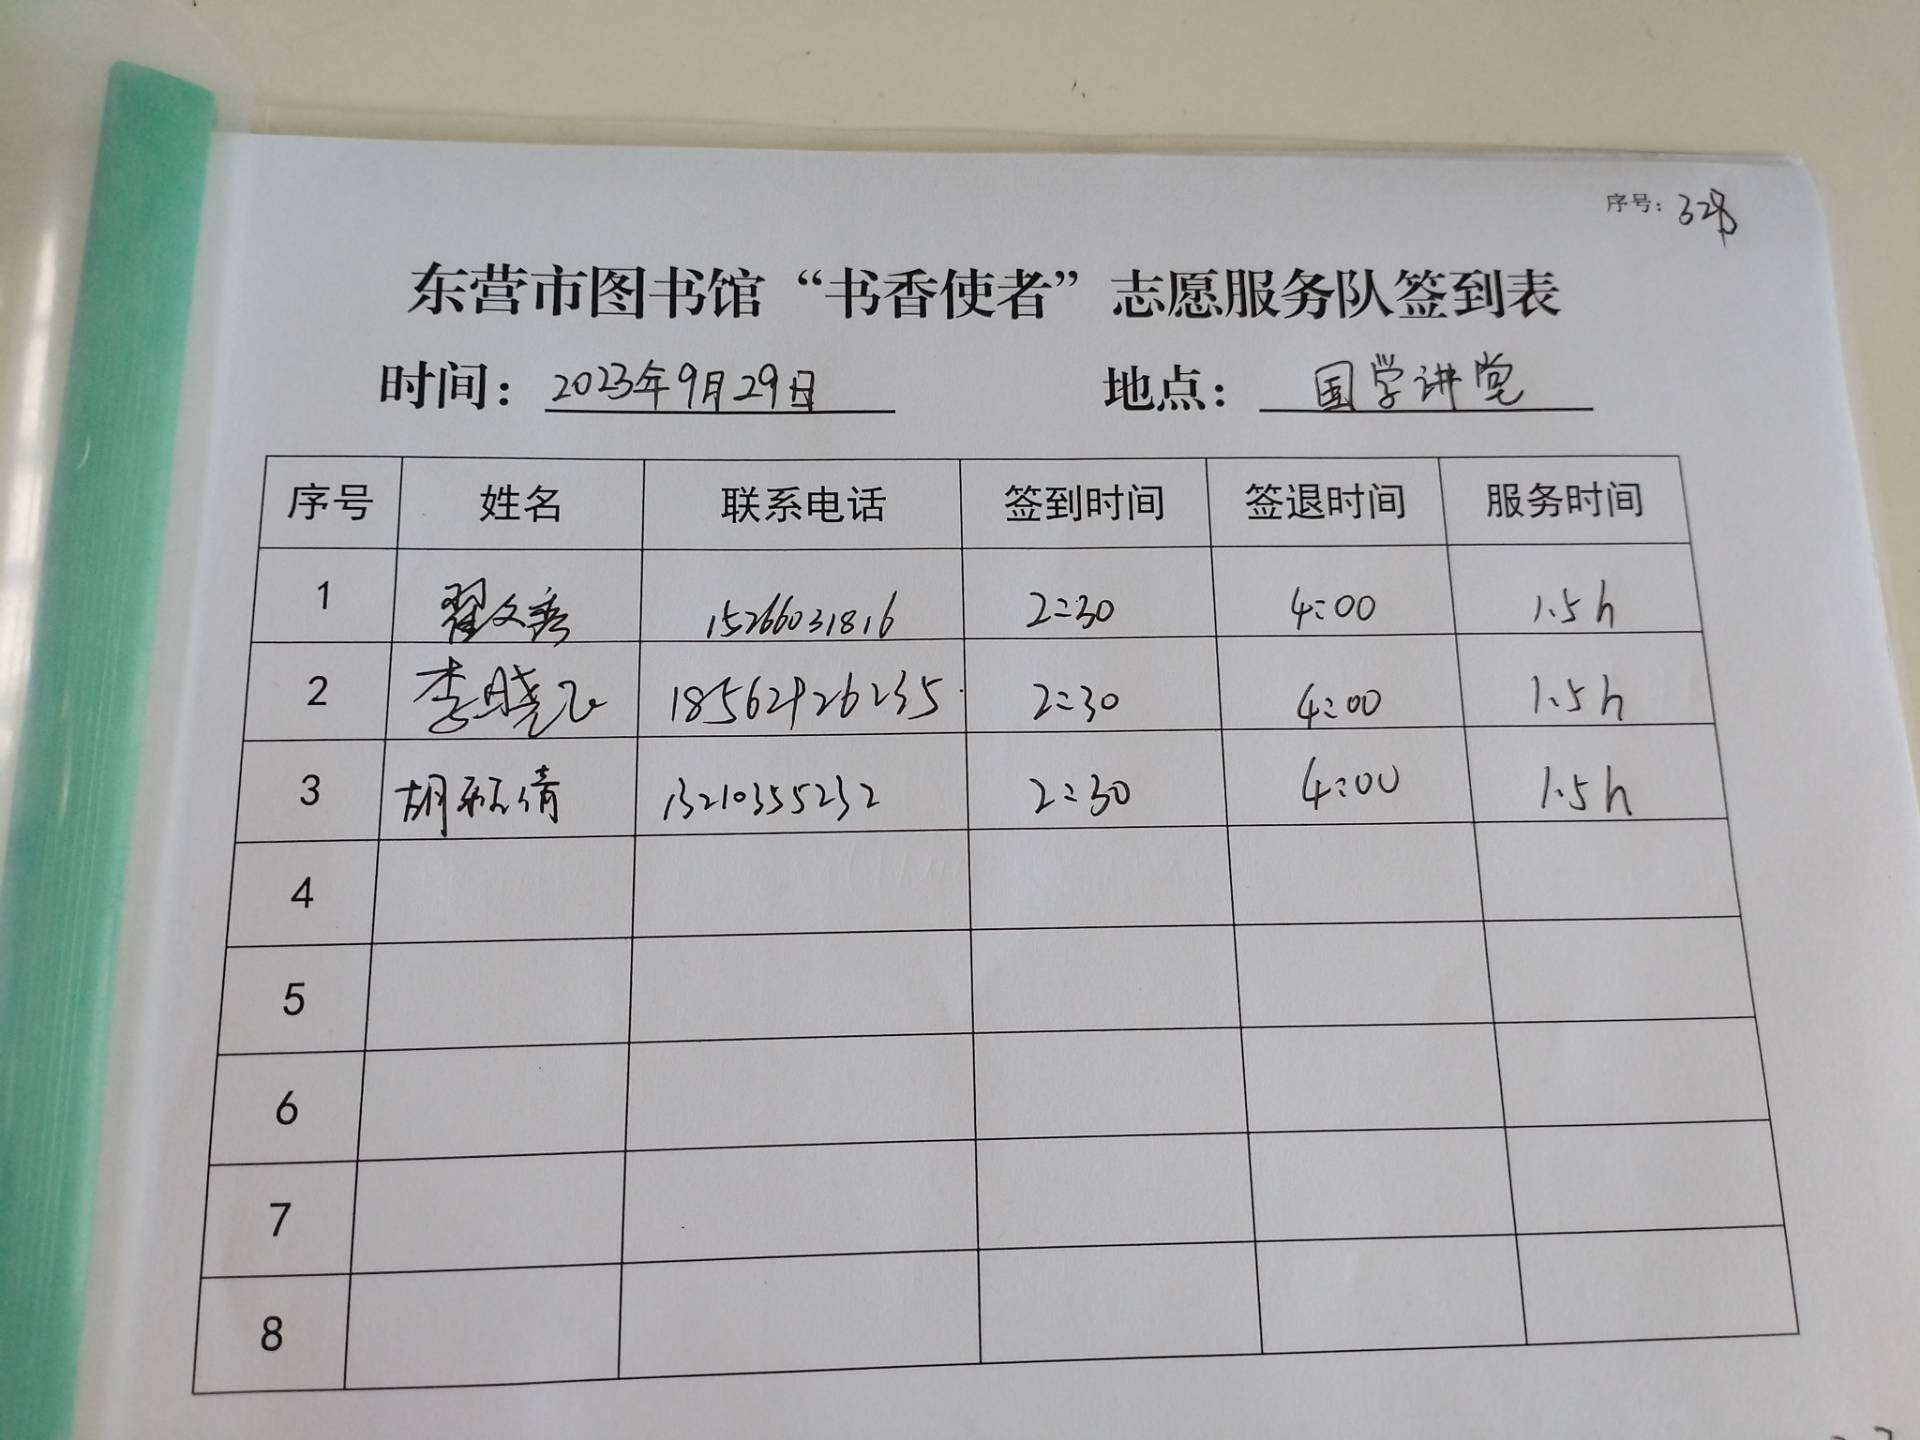 序号: 328
东营市图书馆“书香使者”志愿服务队签到表
时间: 2023年9月29日 地点: 国学讲堂
序号 姓名 联系电话 签到时间 签退时间 服务时间
1 翟文秀 15266031816 2:30 4:00 1.5h
2 李晓飞 2:30 4:00 1.5h
3 胡 倩 13210355232 2:30 4:00 1.5h
4
5
6
7
8